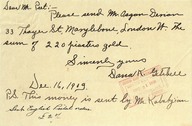 Dear Mr. Peet:-
Please send Mr. Aram Derian
33 Thayer St. Marylebone, London W. The
sum of 220 piasters gold.
Sincerely yours
Dana K. Getchell
Dec. 16, 1909
P.S. This money is sent by Mr. Kabaljian
English